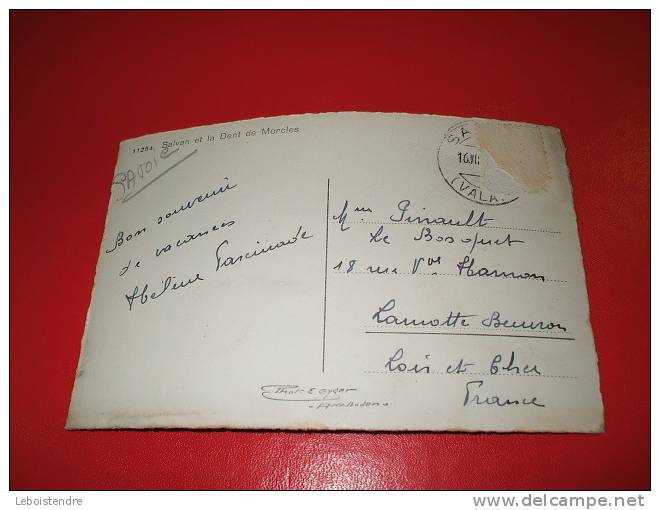 11284. Salvan et la Dent de Morcles
SAVOIE
Bon souvenir
de vacances
Hélène
SA
16.VII
(VALA
Mme Pinault
Le Bosquet
18 rue Vve Hamon
Lamotte Beuvron
Loir et Cher
France
Phot. E Gyger
Adelboden
Leboistendre
delcampe.net